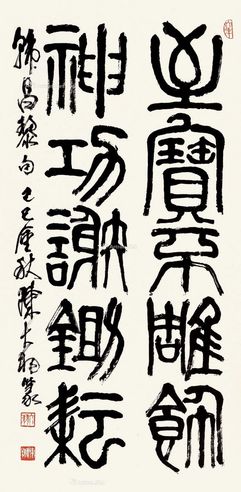 至寶不雕飾
神功謝鋤耘
韩昌黎句己巳金秋陳大羽篆